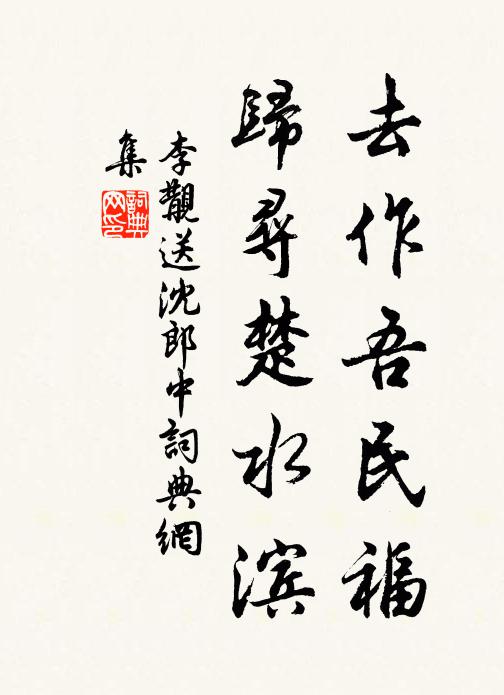 去作吾民福
歸尋楚水滨
李覯送沈郎中詞典網
集
詞典
网印